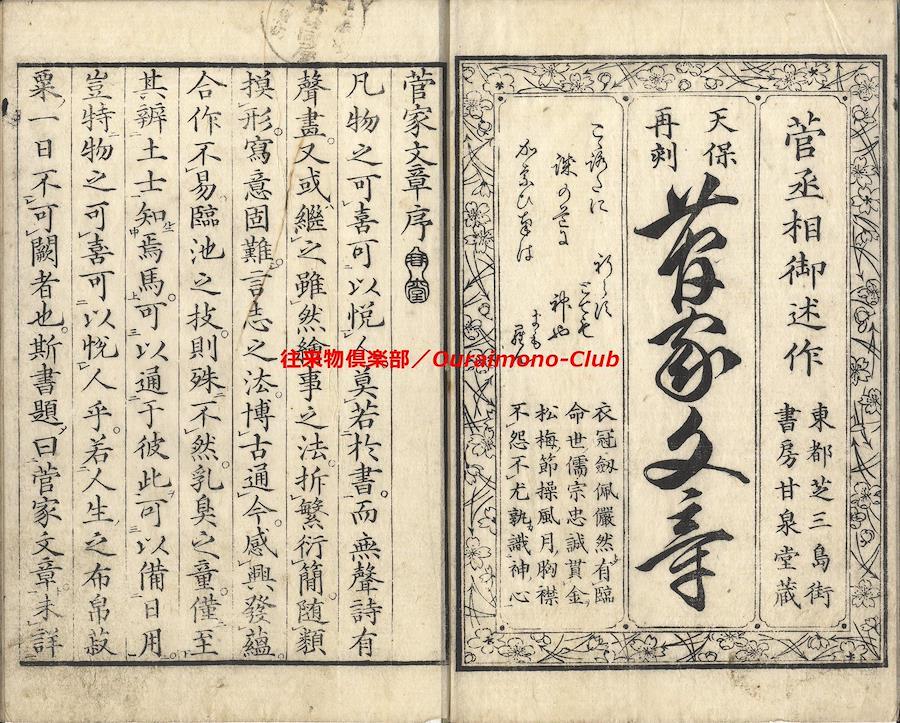 菅丞相御述作
東都芝三島街
書房甘泉堂蔵
天保
再刻
菅家文章
こゝろたに
誠の道に
かなひなは
いのらす
とても
神や
まも
らむ
衣冠劔佩儼然有臨
命世儒宗忠誠貫金
松梅節操風月胸襟
不怨不尤孰識神心
菅家文章序
凡物之可喜可以悦人莫若於書而無聲詩有
聲畫又或繼之雖然繪事之法折繁衍簡随類
摸形寫意固難言志之法博古通今感興發蘊
合作不易臨池之技則殊不然乳臭之童僅至
其辨土士知焉馬可以通于彼此可以備日用
豈特物之可喜可以悦人乎若人生之布帛菽
粟一日不可闕者也斯書題曰菅家文章未詳
往来物倶楽部／Ouraimono-Club